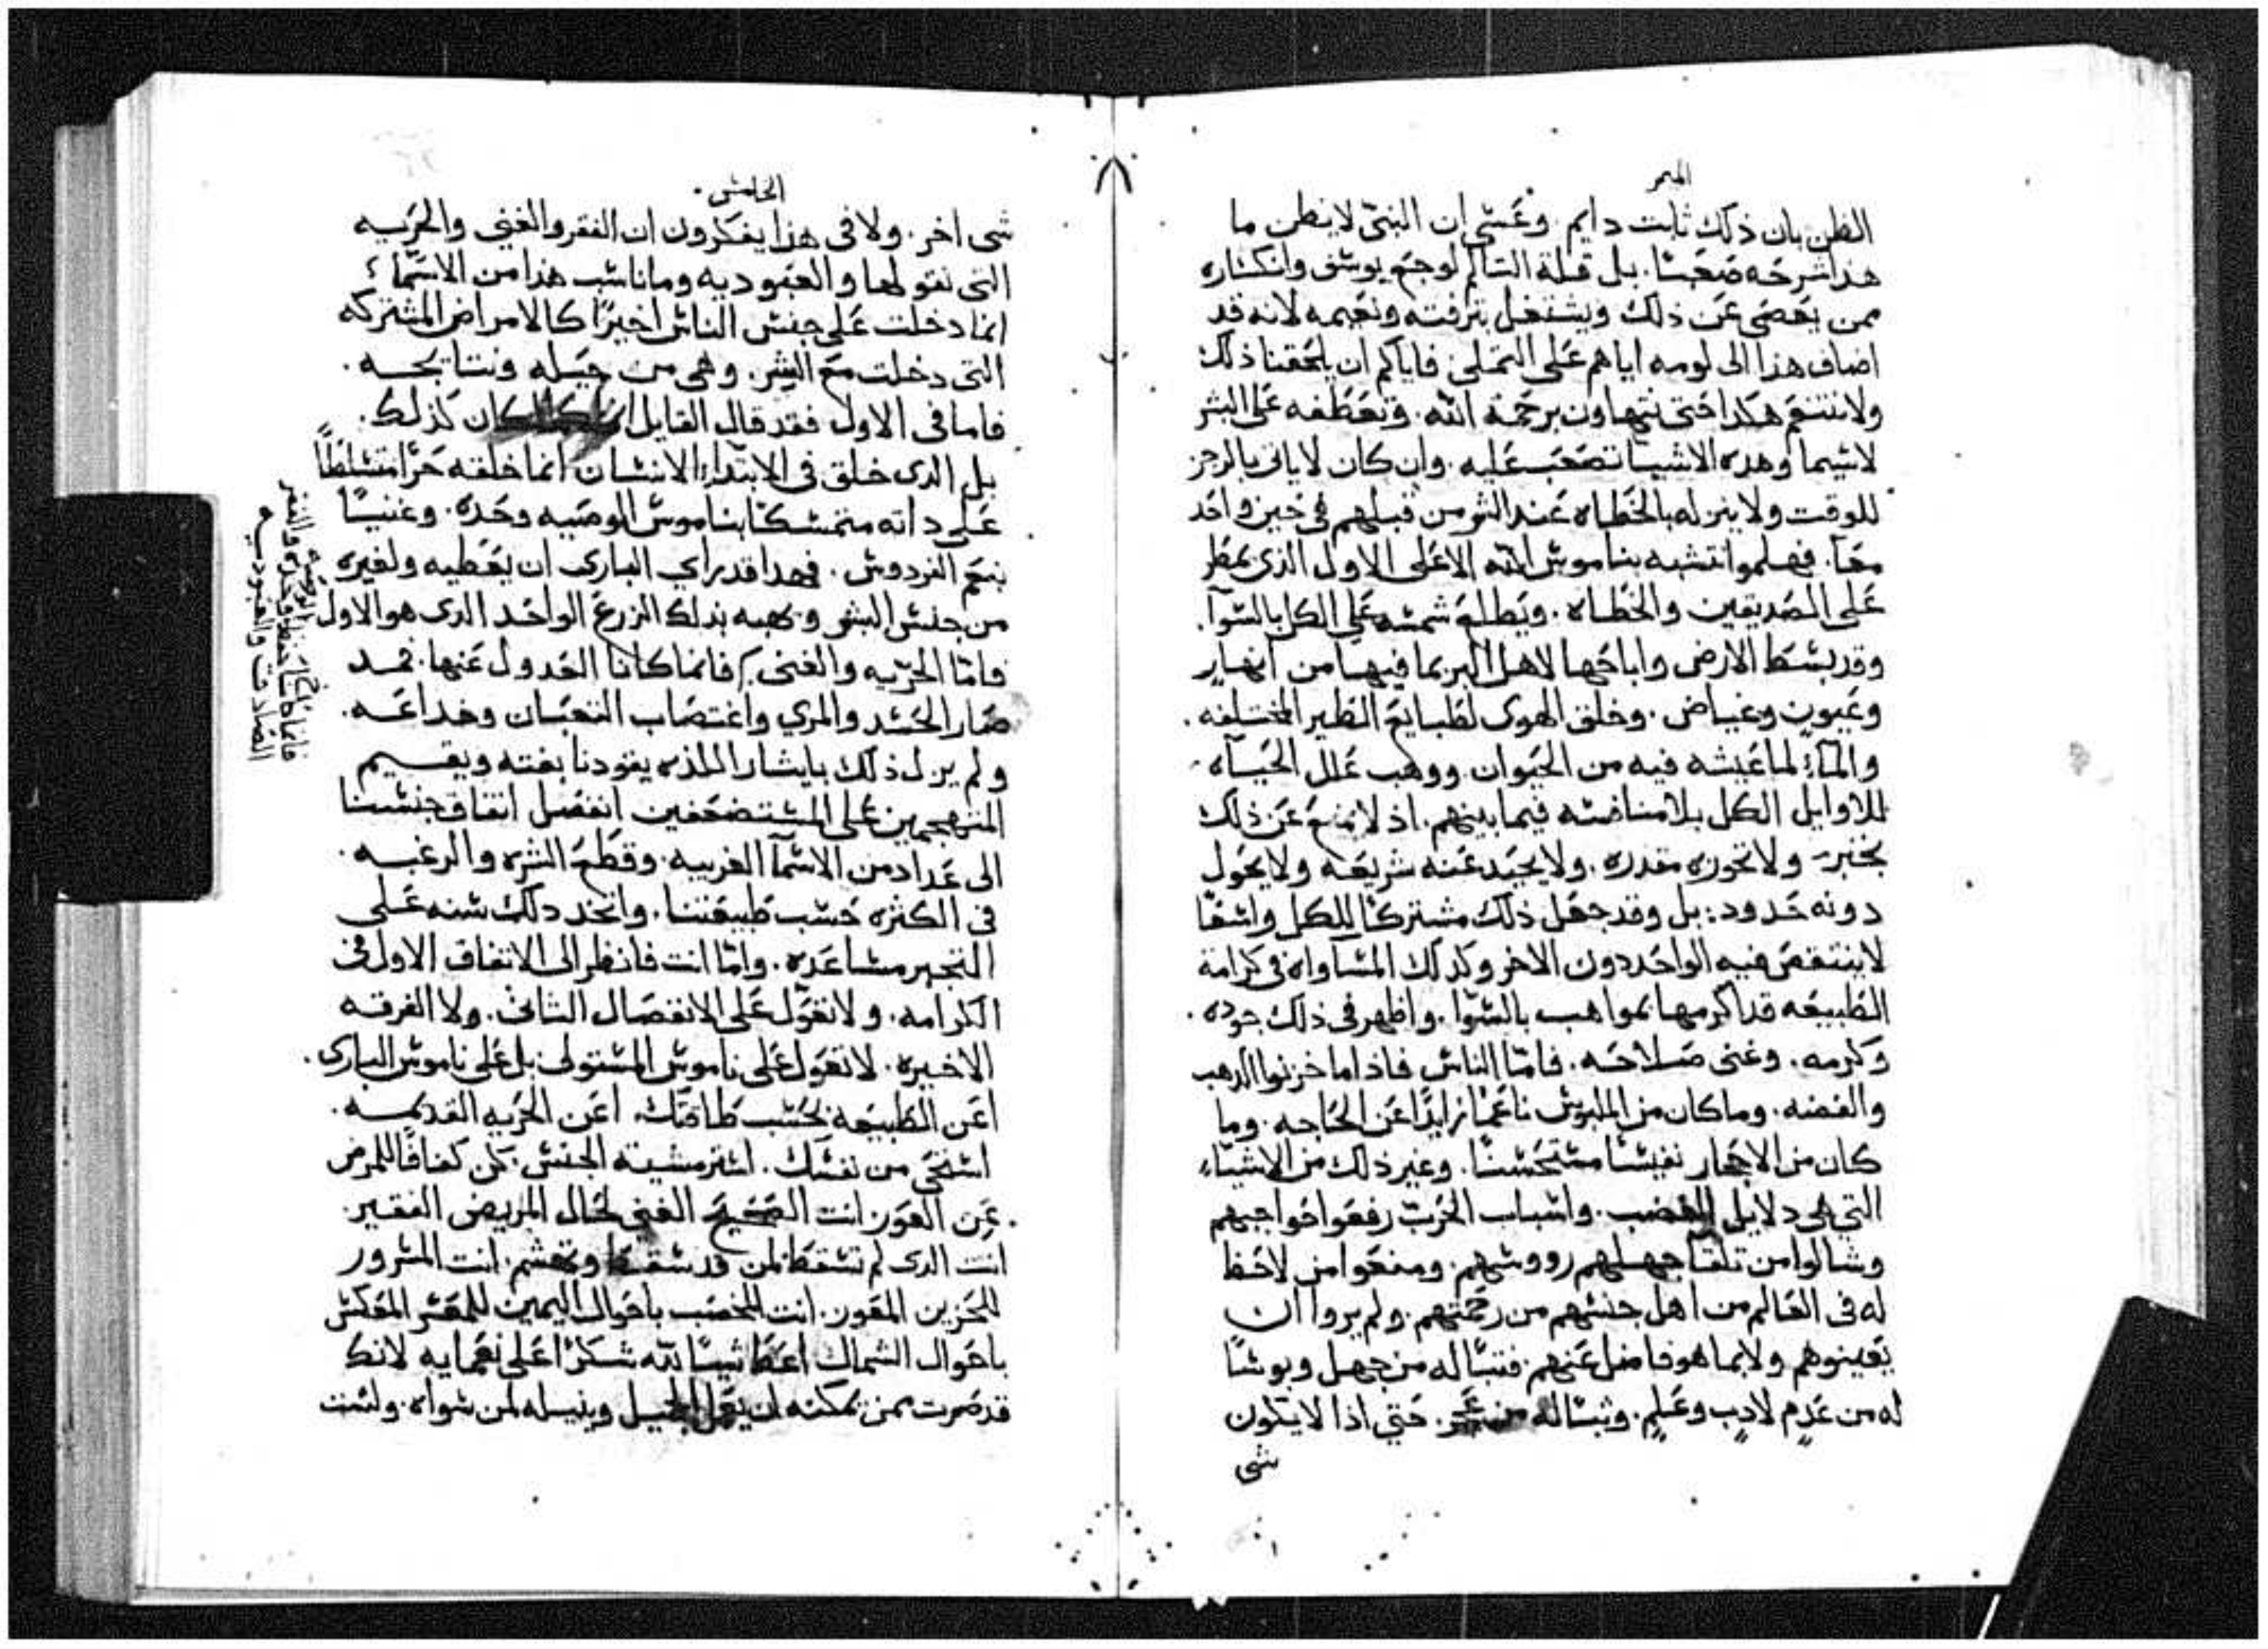 الميمر
الظن بان ذلك ثابت دايم. وعَسٰى ان النبيّ لا يظن ما
هذا شرحَه صَعَبًا. بل قلة التالم لوجع يوسف وانكساره
ممن يغضى عَن ذلك ويشتغل بترفته ونعيمه لانه قد
اضاف هذا الى لومه اياهم عَلى التملى فاياكم ان يلحَقنا ذلك
ولا نتنعَم هكدا حَتى نتهاون برحَمة الله. وتعَطفه عَلى البشر
لاسيما وهده الاشيا تصَعَب عَليه. وان كان لا ياتى بالرجز
للوقت ولا ينزله بالخَطاه عَند الشر من قبلهم فى حَين واحَد
معَا. فهلموا نتشبه بناموس الله الاعَلى الاول الذى يمطر
عَلى الصَديقين والخَطاه. ويَطلع شمسه عَلى الكل بالسوآ.
وقد بسَط الارض واباحَها لاهل البر بما فيهامن انهار
وعَيون وغياض. وخلق الهوى لطبايع الطير المختلفه.
والمآء لما عَيشه فيه من الحَيوان ووهب عَلل الحَياه
للاوايل الكل بلا مناقسه فيما بينهم. اذ لا يمنع عَن ذلك
بخبر ولا تحوزه مقدره. ولا يحَيد عَنه شريعَه ولا يحَول
دونه حَدود: بل وقد جعَل ذلك مشتركًا للكل واسعًا
لا ينتقصَ فيه الواحَد دون الاخر وكدلك المساواه فى كرامة
الطبيعَه قد اكرمها بمواهب بالسّوا. واظهر فى ذلك جوده.
وكرمه. وغنى صَلاحَه. فامّا الناس فاذا ما خزنوا الدهب
والفضه. وما كان من الملبوس ناعَمًا زايدًا عَن الحَاجه. وما
كان من الاحجار نفيسًا مستحَسنًا. وغير ذلك من الاشيَاء
التي هى دلايل الغضب. واسباب الحَرب رفعَوا حَواجبهم
وشالوا من تلقآ جهلهم رووسهم. ومنعَوا من لاحَظ
له فى العَالم من اهل جنسهم من رحَمتهم. ولم يروا ان
يعَينوهم ولا بما هو فاضل عَنهم. فتبًا له من جهل وبوسًا
له من عَدم لادب وعَلم. وتبًا له من عَجر. حَتي اذا لا يكون
شى
الخامس.
شى اخر. ولا فى هذا يفكرون ان الفقر والغنى والحَريه
التى نقولها والعَبوديه وما ناسب هذا من الاسمّاء
انما دخلت عَلى جنس الناس اخيرًا كالامراض المشتركه
التى دخلت مع الشر. وهى من حَيله ونتايجه.
فاما فى الاول فقد قال القايل كان كذلك.
بل الدى خلق فى الابتداء الانسان انما خلقه حَرًا متسَلطًا
عَلى داته متمسكًا بناموس الوصَيه وحَده. وغنيًا
بنعَم الفردوس. فهدا قد راي البارى ان يعَطيه ولغيره
من جنس البشر ويهبه بدلك الزرع الواحَد الدى هو الاول
فامّا الحرّيه والغنى فانما كانا العَدول عَنها. فمد
صَار الحَسَد والمري واغتصَاب الثعَبان وخداعَه.
ولم يزل ذلك بايثار الملذه يقودنا بغته ويقيم
المتهجمين عَلى المستضعَفين انفصَل اتفاق جنسنا
الى عَداد من الاسمآ الغريبه. وقطع الشره والرغبه
فى الكثره حَسب طبيعَتنا. واتخد دلك سنه عَلى
التجبر مساعَده. وامّا انت فانظر الى الاتفاق الاول فى
الكرامه. ولا تعَوّل عَلى الانفصَال الثانى. ولا الفرقه
الاخيره. لا تعَول عَلى ناموس المستولى بل عَلى ناموس البارى.
اعَن الطبيعَه بحَسب طاقتك اعَن الحَريه القديمه.
استحَى من نفسك. استر مشينة الجنس. كن كفافًا للمرض
عَن العَور. انت الصَحَيحَ الغنى لحَال المريض الفقير.
انت الدى لم تسقط لمن قد سقط وتهشم. انت المسرور
للحَزين المغور. انت المخصَب باحَوال اليمين للمعَسر المعَكس
باحَوال الشمال اعَط شيًا لله شكرًا عَلى نعَمايه لانك
قد صَرت ممن يمكنه ان يعَمل الجميل وينيله لمن سواه. ولست
فانما كانا حَفظ الوصيّه وحَده والفقر
الصَادقت والعَبوديه